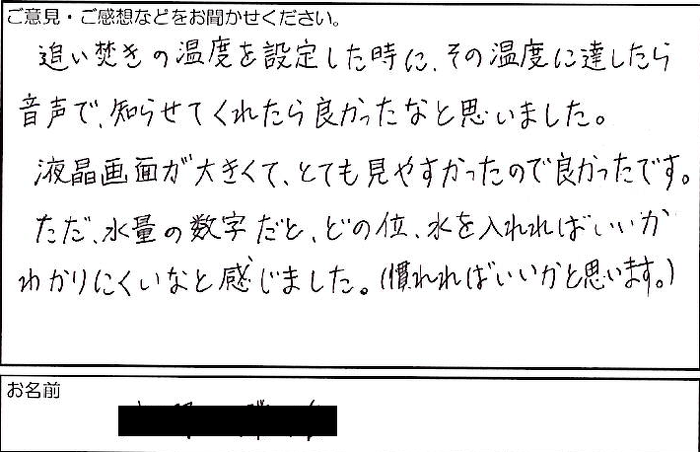 ご意見・ご感想などをお聞かせください。
追い焚きの温度を設定した時に、その温度に達したら
音声で、知らせてくれたら良かったなと思いました。
液晶画面が大きくて、とても見やすかったので良かったです。
ただ、水量の数字だと、どの位、水を入れればいいか
わかりにくいなと感じました。(慣れればいいかと思います。)
お名前